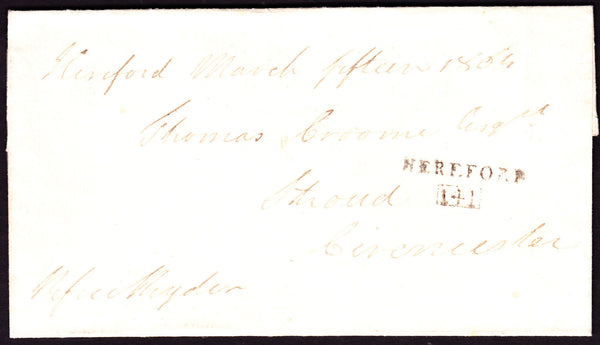 Hereford March fifteen 1804
Thomas Croome Esqre
HEREFORD
141
Stroud
Cirencester